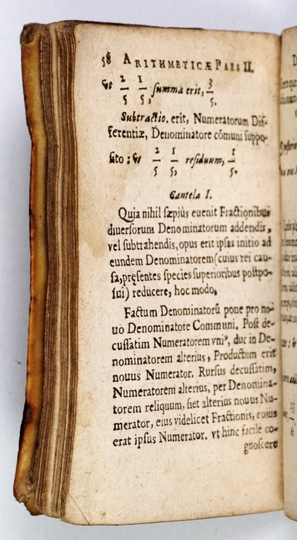 58 ARITHMETICÆ PARS II.
vt 2/5 1/5, summa erit, 3/5.
Subtractio. erit, Numeratorum Dif-
ferentiæ, Denominatore cõmuni suppo-
sito; vt 2/5 1/5, residuum, 1/5.
Cautela I.
Quia nihil sæpiùs euenit Fractionibus
diuersorum Denominatorum addendis,
vel subtrahendis, opus erit ipsas initio ad
eundem Denominatorem (cuius rei cau-
sa, præsentes species superioribus postpo-
sui) reducere, hoc modo.
Factum Denominatorũ pone pro no-
uo Denominatore Communi. Post de-
cussatim Numeratorem vniꝰ, duc in De-
nominatorem alterius, Productum erit
nouus Numerator. Rursus decussatim,
Numeratorem alterius, per Denomina-
torem reliquum, fiet alterius nouus Nu-
merator, eius videlicet Fractionis, cuius
erat ipsus Numerator. vt hinc facile co-
gnoscere